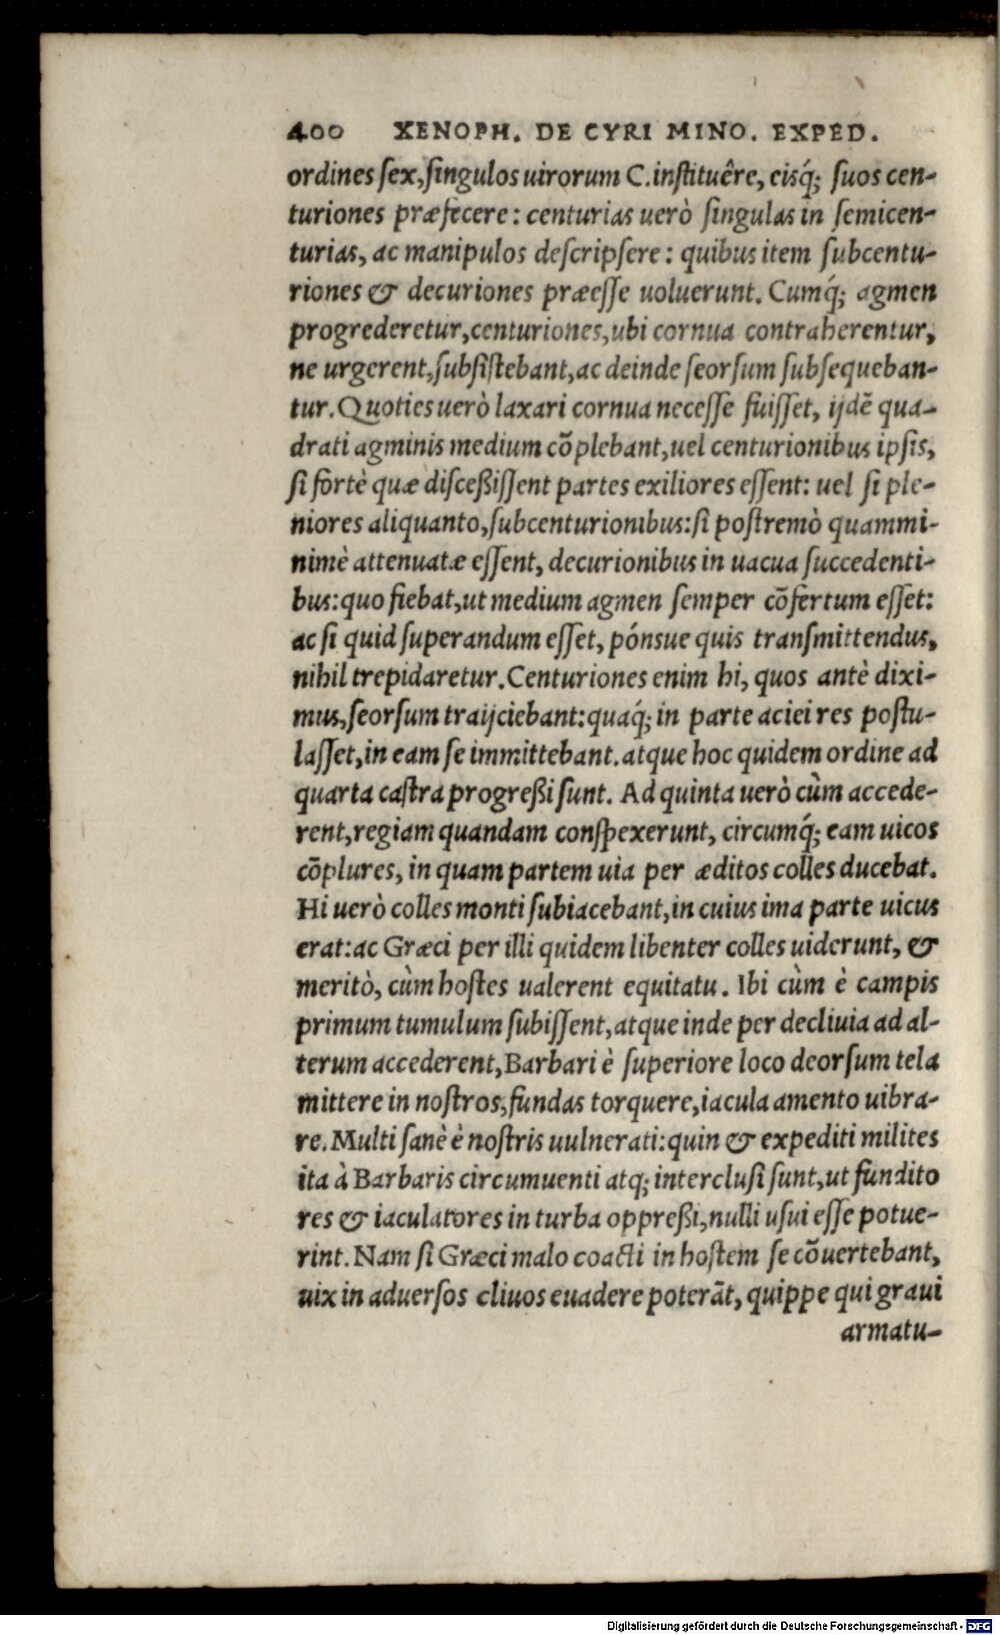 400 XENOPH. DE CYRI MINO. EXPED.
ordines sex, singulos uirorum C. instituêre, eisq́; suos cen-
turiones præfecere: centurias uerò singulas in semicen-
turias, ac manipulos descripsere: quibus item subcentu-
riones & decuriones præesse uoluerunt. Cumq́; agmen
progrederetur, centuriones, ubi cornua contraherentur,
ne urgerent, subsistebant, ac deinde seorsum subsequeban-
tur. Quoties uerò laxari cornua necesse fuisset, ijdē qua-
drati agminis medium cōplebant, uel centurionibus ipsis,
si fortè quæ disceßissent partes exiliores essent: uel si ple-
niores aliquanto, subcenturionibus: si postremò quammi-
nimè attenuatæ essent, decurionibus in uacua succedenti-
bus: quo fiebat, ut medium agmen semper cōfertum esset:
ac si quid superandum esset, pónsue quis transmittendus,
nihil trepidaretur. Centuriones enim hi, quos antè dixi-
mus, seorsum traijciebant: quaq́; in parte aciei res postu-
lasset, in eam se immittebant. atque hoc quidem ordine ad
quarta castra progreßi sunt. Ad quinta uerò cùm accede-
rent, regiam quandam conspexerunt, circumq́; eam uicos
cōplures, in quam partem uia per æditos colles ducebat.
Hi uerò colles monti subiacebant, in cuius ima parte uicus
erat: ac Græci per illi quidem libenter colles uiderunt, &
meritò, cùm hostes ualerent equitatu. Ibi cùm è campis
primum tumulum subissent, atque inde per decliuia ad al-
terum accederent, Barbari è superiore loco deorsum tela
mittere in nostros, fundas torquere, iacula amento uibra-
re. Multi sanè è nostris uulnerati: quin & expediti milites
ita à Barbaris circumuenti atq; interclusi sunt, ut fundito
res & iaculatores in turba oppreßi, nulli usui esse potue-
rint. Nam si Græci malo coacti in hostem se cōuertebant,
uix in aduersos cliuos euadere poterāt, quippe qui graui
armatu-
Digitalisierung gefördert durch die Deutsche Forschungsgemeinschaft - DFG